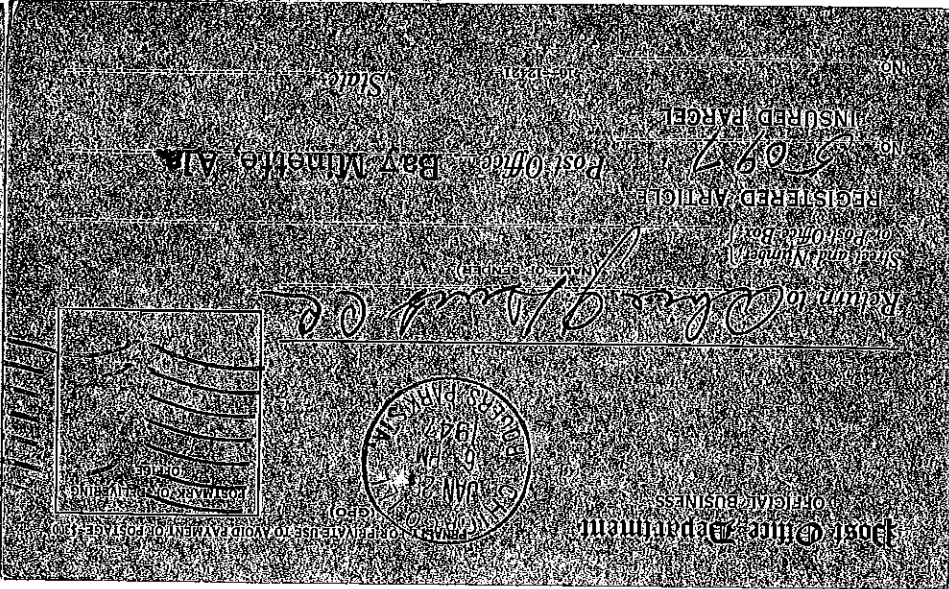 Post Office Department
OFFICIAL BUSINESS
PENALTY FOR PRIVATE USE TO AVOID PAYMENT OF POSTAGE, $
(GPO)
POSTMARK OF DELIVERING
OFFICE
JAN 2
6 PM
1947
ROGERS PARK STA.
Return to
(NAME OF SENDER)
Street and Number,
or Post Office Box,
REGISTERED ARTICLE
No. 51097
Post Office Bay Minette, Ala.
INSURED PARCEL
No.
State